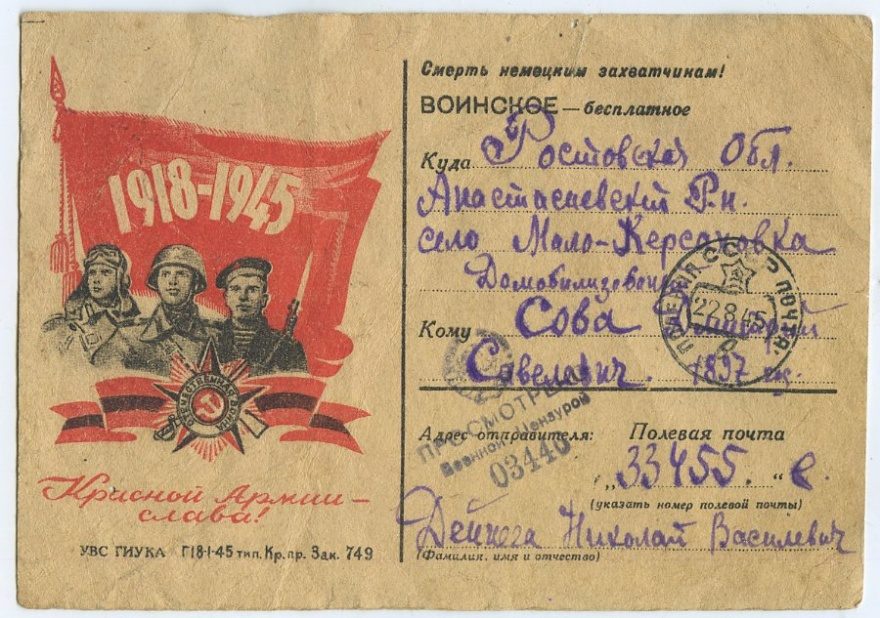 1918-1945
ОТЕЧЕСТВЕННАЯ ВОЙНА
Красной Армии-
слава!
УВС ГИУКА Г18-1-45 тип. Кр. пр. Зак. 749
Смерть немецким захватчинам!
ВОИНСКОЕ — бесплатное
Куда Ростовская Обл.
Анастасиевский Р.н.
село Мало-Керсановка
Кому Сова Григорий
Савелевич. 1897
22.8.45
ПРОСМОТРЕНО
Военной Цензурой
03440
Адрес отправителя: Полевая почта
„33455.“ е.
(указать номер полевой почты)
Дейнега Николай Василевич
(Фамилия, имя и отчество)